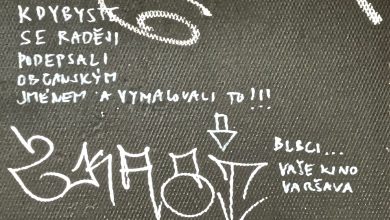 KDYBYSTE
SE RADĚJI
PODEPSALI
OBČANSKÝM
JMÉNEM A VYMALOVALI TO!!!
BLBCI...
VAŠE KINO
VARŠAVA